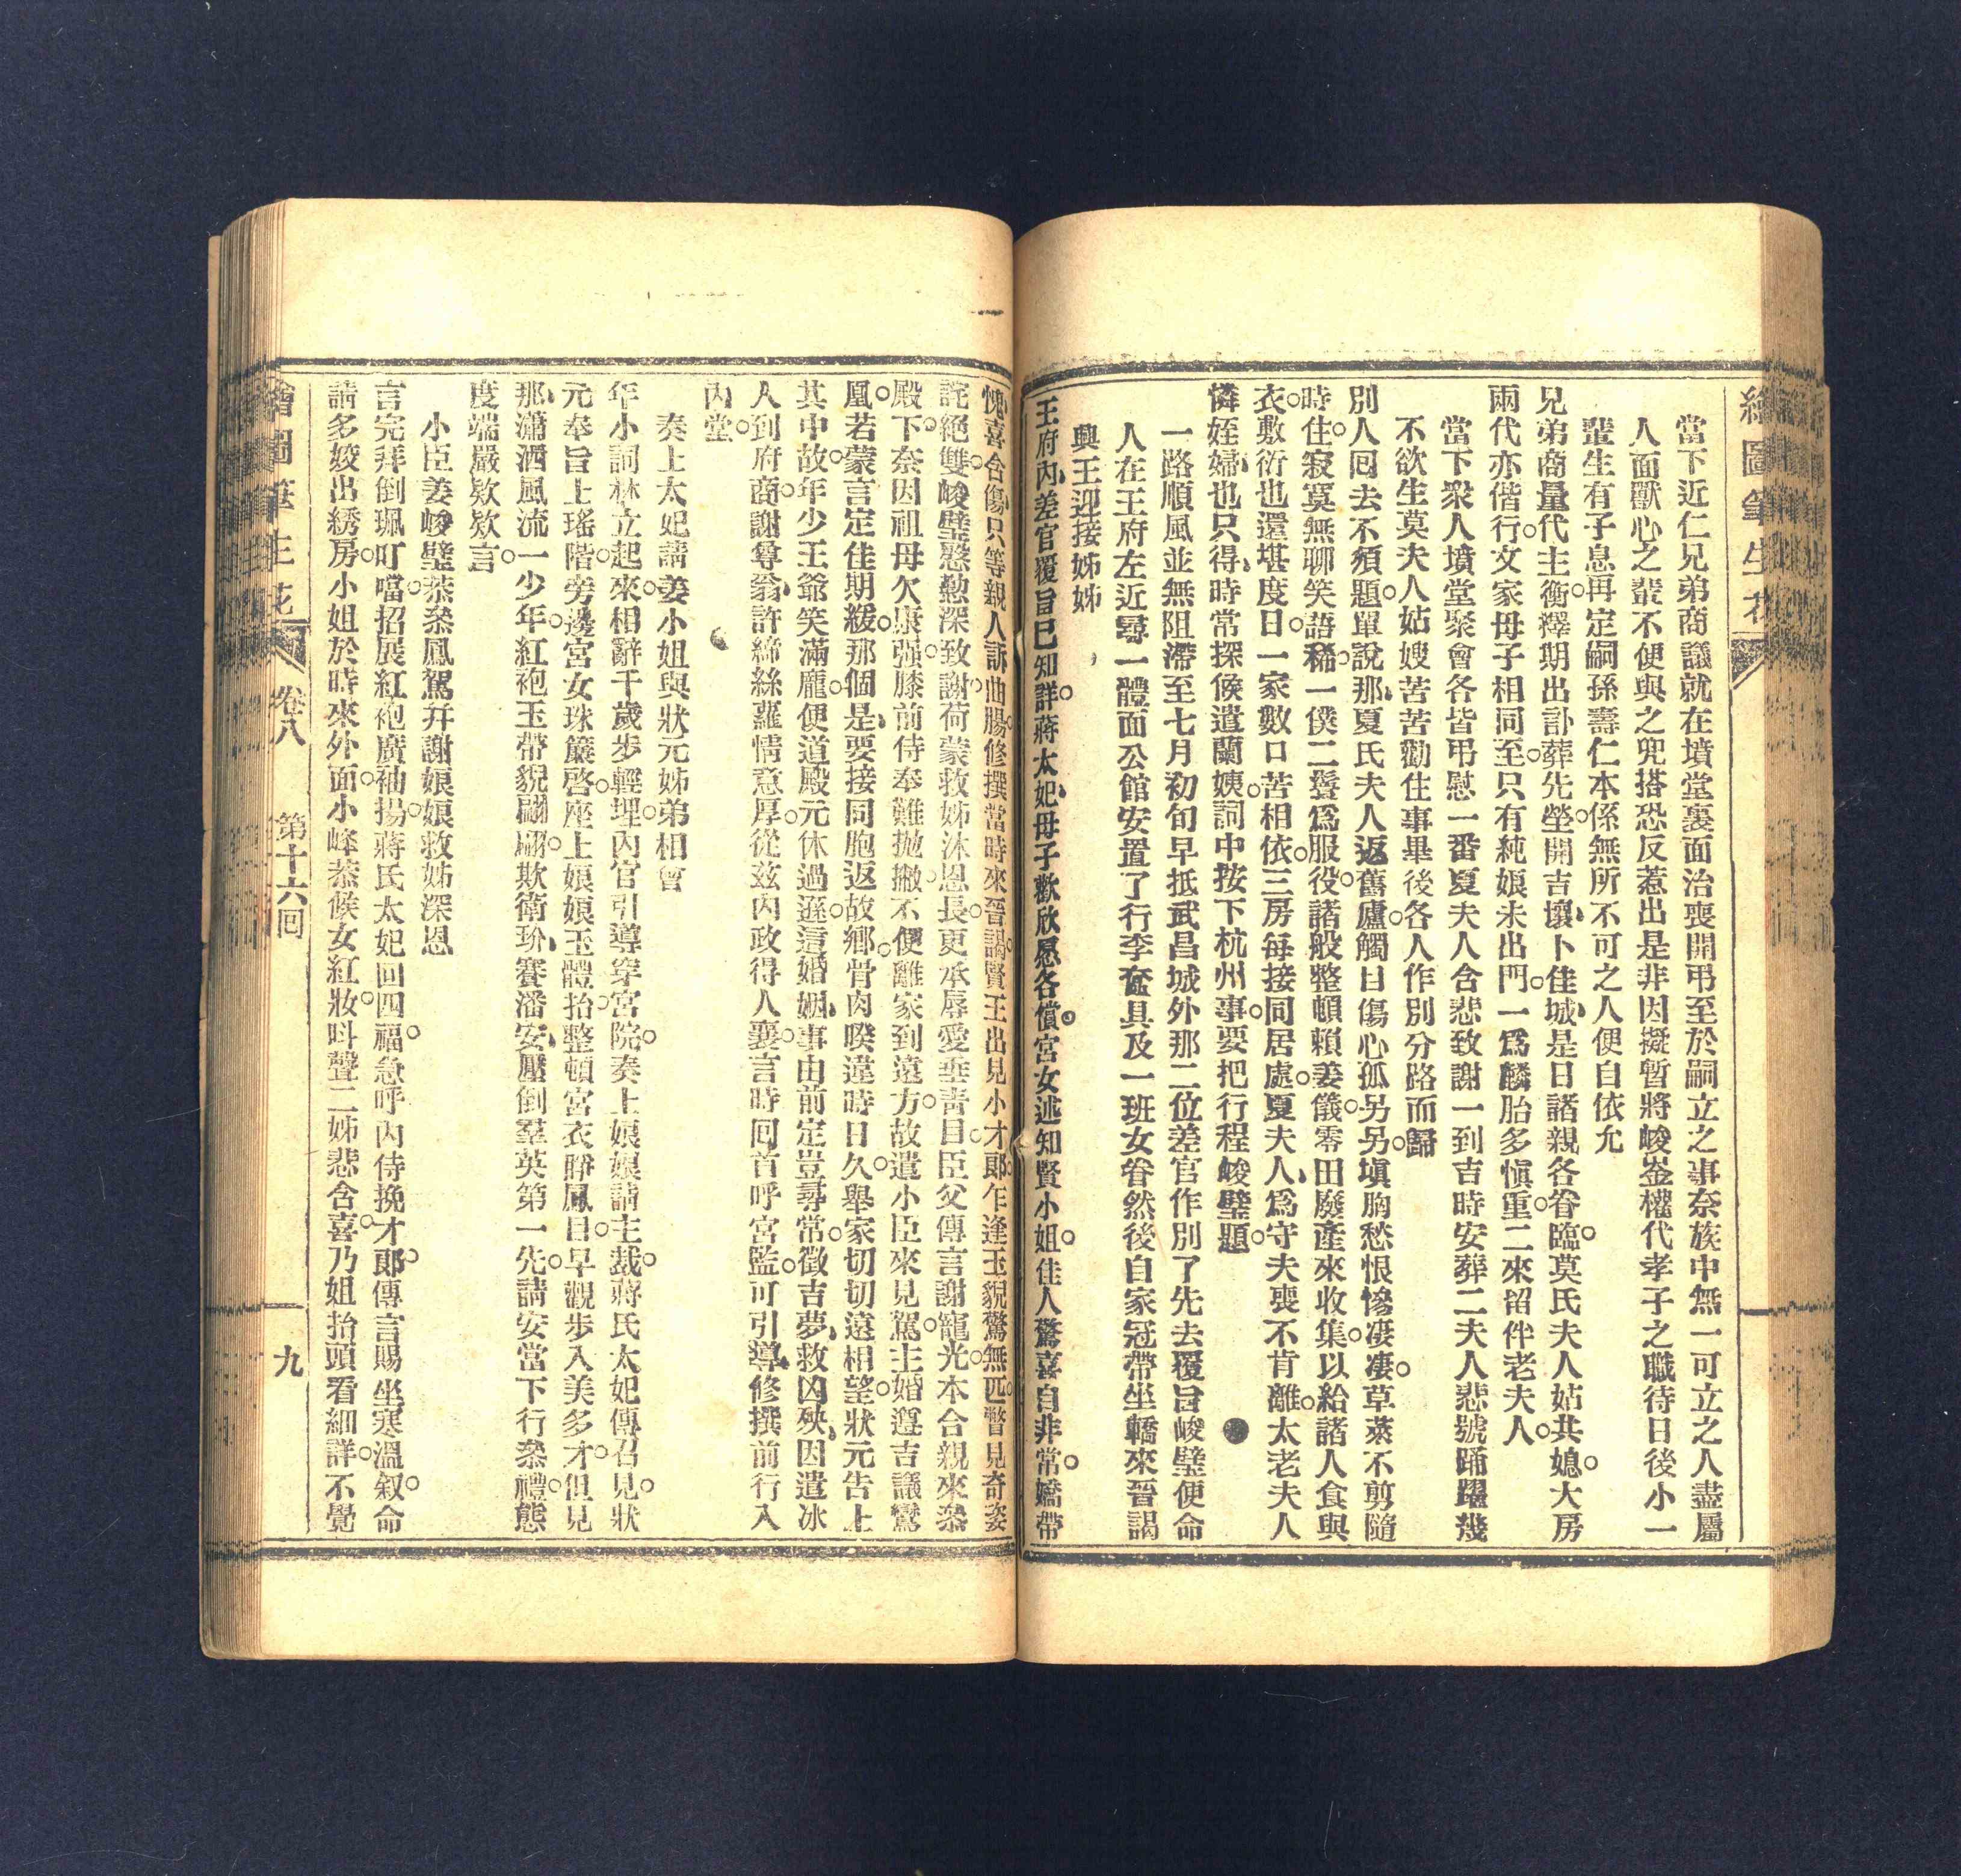 繪圖筆生花
當下近仁兄弟商議就在墳堂裏面治喪開弔至於嗣立之事奈族中無一可立之人盡屬
人面獸心之輩不便與之兜搭恐反惹出是非因擬暫將峻崟權代孝子之職待日後小一
輩生有子息再定嗣孫壽仁本係無所不可之人便自依允
兄弟商量代主衡。擇期出訃葬先塋。開吉壤卜佳城是日諸親各眷臨。莫氏夫人姑共媳。大房
兩代亦偕行。文家母子相同至。只有純娘未出門。一爲麟胎多愼重。二來留伴老夫人。
當下衆人墳堂聚會各皆弔慰一番夏夫人含悲致謝一到吉時安葬二夫人悲號踊躍幾
不欲生莫夫人姑嫂苦苦勸住事畢後各人作別分路而歸
別人囘去不須題。單說那夏氏夫人返舊廬。觸目傷心孤另另。塡胸愁恨慘凄凄。草萊不剪隨
時住。寂寞無聊笑語稀。一僕二鬟爲服役。諸般整頓賴姜儀。零田廢產來收集。以給諸人食與
衣。敷衍也還堪度日。一家數口苦相依。三房每接同居處。夏夫人爲守夫喪不肯離。太老夫人
憐姪婦也只得時常探候遣蘭姨。詞中按下杭州事。要把行程峻璧題。
一路順風並無阻滯至七月初旬早抵武昌城外那二位差官作別了先去覆旨峻璧便命
人在王府左近尋一體面公館安置了行李奩具及一班女眷然後自家冠帶坐轎來晉謁
興王迎接姊姊
王府內差官覆旨已知詳。蔣太妃母子歡欣愿各償。宮女述知賢小姐。佳人驚喜自非常。嬌帶
愧喜含傷只等親人訴曲腸。修撰當時來晉謁。賢王出見小才郎。乍逢玉貌驚無匹。瞥見奇姿
詫絕雙。峻璧慇懃深致謝。荷蒙救姊沐恩長。更承辱愛垂靑目。臣父傳言謝寵光。本合親來叅
殿下。奈因祖母欠康强。膝前侍奉難抛撇。不便離家到遠方。故遣小臣來見駕。主婚遵吉議鸞
凰。若蒙言定佳期緩。那個是要接同胞返故鄉。骨肉睽違時日久。舉家切切遠相望。狀元告上
其中故。年少王爺笑滿龐。便道殿元休過遜。這婚姻事由前定豈尋常。徵吉夢救凶殃因遣冰
人到府商。謝尊翁許締絲蘿情意厚。從茲內政得人襄。言時囘首呼宮監。可引導修撰前行入
內堂。
奏上太妃請姜小姐與狀元姊弟相會
年小詞林立起來。相辭千歲步輕埋。內官引導穿宮院。奏上娘娘請主裁。蔣氏太妃傳召見。狀
元奉旨上瑤階。旁邊宮女珠簾啓。座上娘娘玉體抬。整頓宮衣睜鳳目。早觀步入美多才。但見
那瀟洒風流一少年。紅袍玉帶貌翩翩。欺衛玠賽潘安壓倒羣英第一先。請安當下行叅禮。態
度端嚴欵欵言。
小臣姜峻璧恭叅鳳駕幷謝娘娘救姊深恩
言完拜倒珮叮噹。招展紅袍廣袖揚。蔣氏太妃回四福。急呼內侍挽才郎。傳言賜坐寒溫叙。命
請多姣出綉房。小姐於時來外面。小峰恭候女紅妝。呌聲二姊悲含喜。乃姐抬頭看細詳。不覺
繪圖筆生花 卷八 第十六回 九